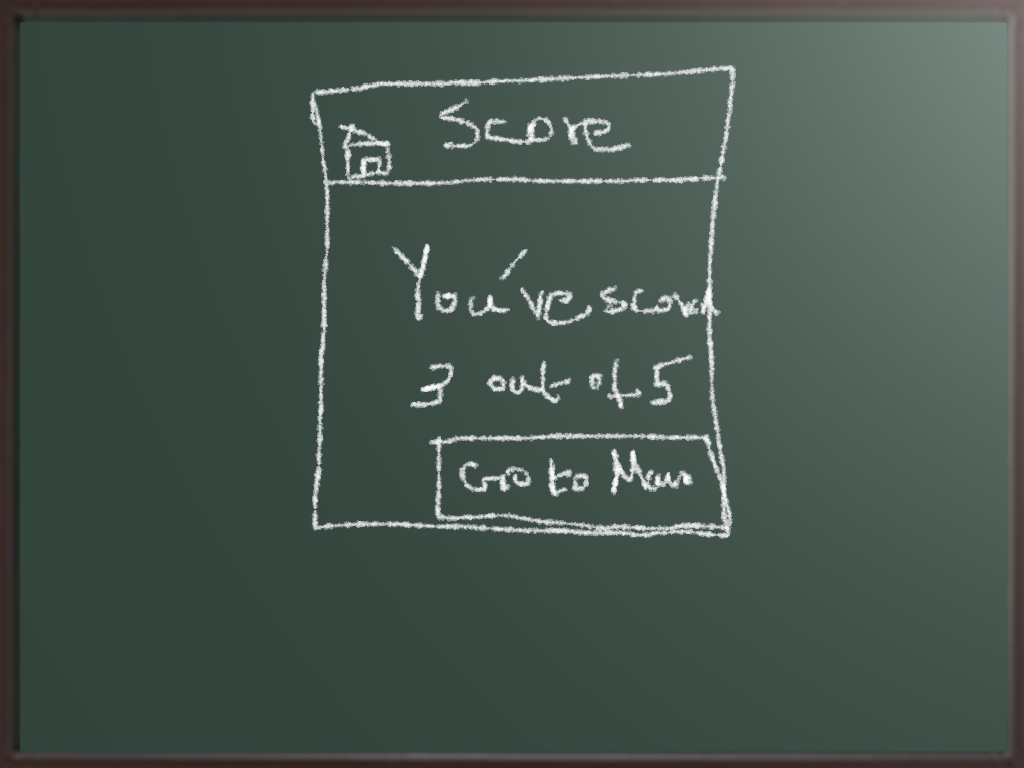 Score
You've scored
3 out of 5
Go to Main